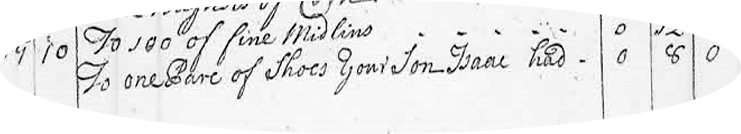 10 To 100 of fine Midlins - - - - - 0 12
To one Pare of Shoes Your Son Isaac had - 0 8 0